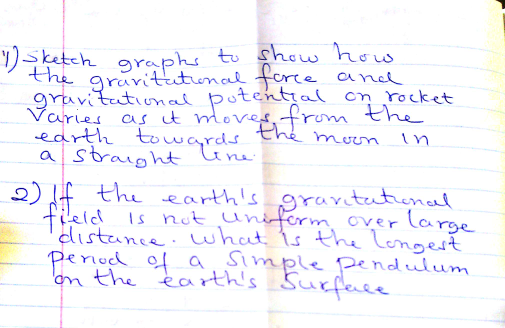 1) Sketch graphs to show how
the gravitational force and
gravitational potential on rocket
Varies as it moves from the
earth towards the moon in
a straight line.
2) If the earth's gravitational
field is not uniform over large
distance. What is the longest
period of a simple pendulum
on the earth's surface